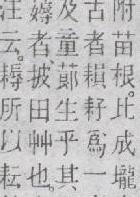 附苗根。比成壠
古者耔爲一
及童蓈生乎其
薅者披田艸也。
云。耨所以耘